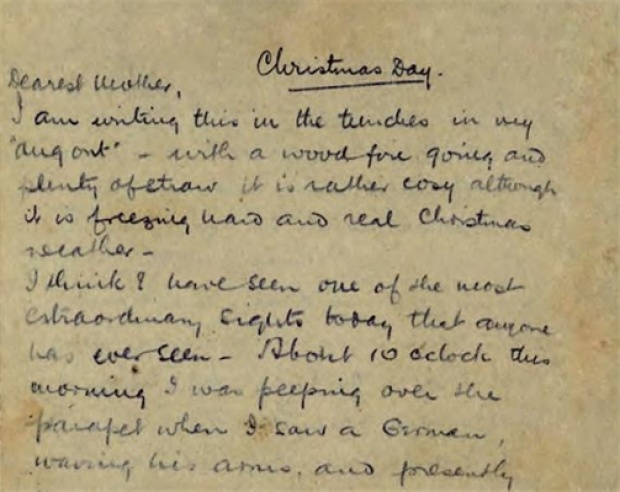 Christmas Day.
Dearest Mother,
I am writing this in the trenches in my
"dug out" - with a wood fire going and
plenty of straw it is rather cosy although
it is freezing hard and real Christmas
weather -
I think I have seen one of the most
extraordinary sights today that anyone
has ever seen - About 10 oclock this
morning I was peeping over the
parapet when I saw a German,
waving his arms, and presently